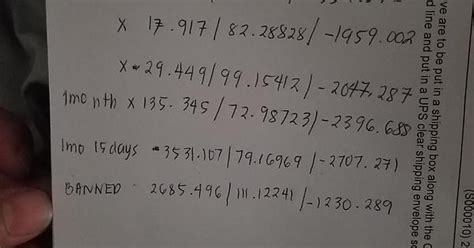 x 17.917 / 82.28828 / -1959.002
x - 29.449 / 99.15412 / - 2047.287
1month x 135.345 / 72.98723 / -2396.688
1mo 15 days - 3531.107 / 79.16969 / -2707.271
BANNED - 2685.496 / 111.12241 / -1230.289
ve are to be put in a shipping box along with the
d line and put in a UPS clear shipping envelope